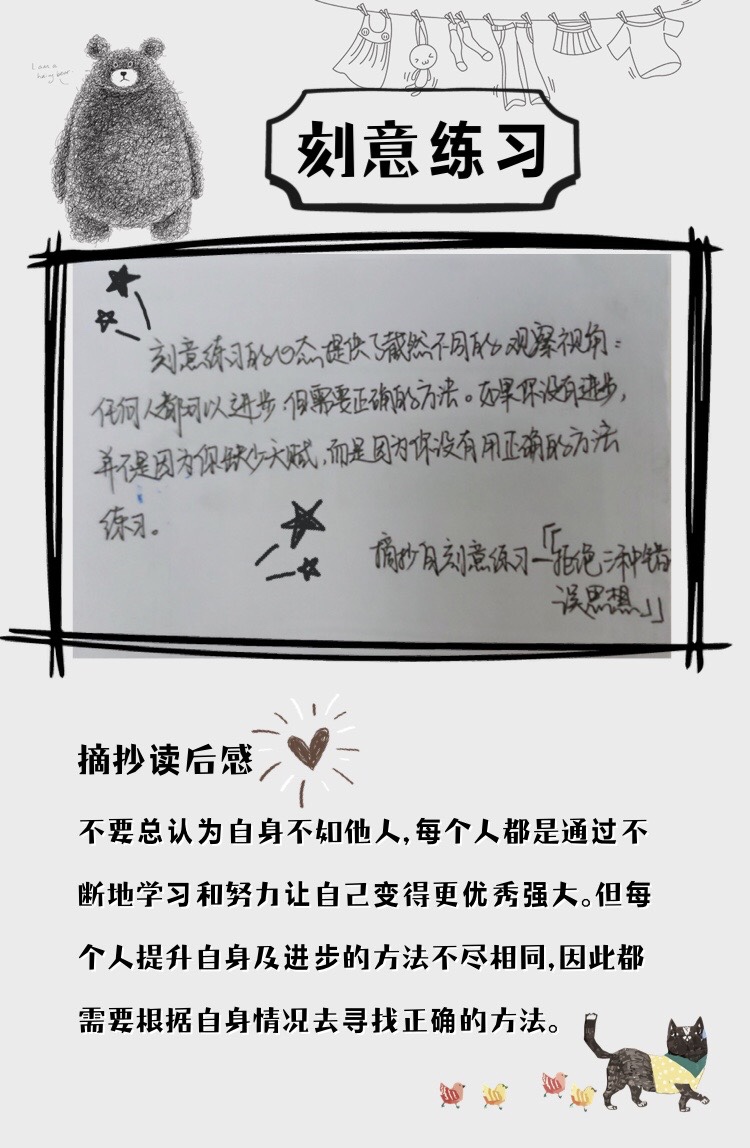 I am a
hairy bear.
刻意练习
刻意练习的心态提供了截然不同的观察视角：
任何人都可以进步，但需要正确的方法。如果你没有进步，
并不是因为你缺少天赋，而是因为你没有用正确的方法
练习。
摘抄自刻意练习—「拒绝三种错
误思想」
摘抄读后感
不要总认为自身不如他人,每个人都是通过不
断地学习和努力让自己变得更优秀强大。但每
个人提升自身及进步的方法不尽相同,因此都
需要根据自身情况去寻找正确的方法。